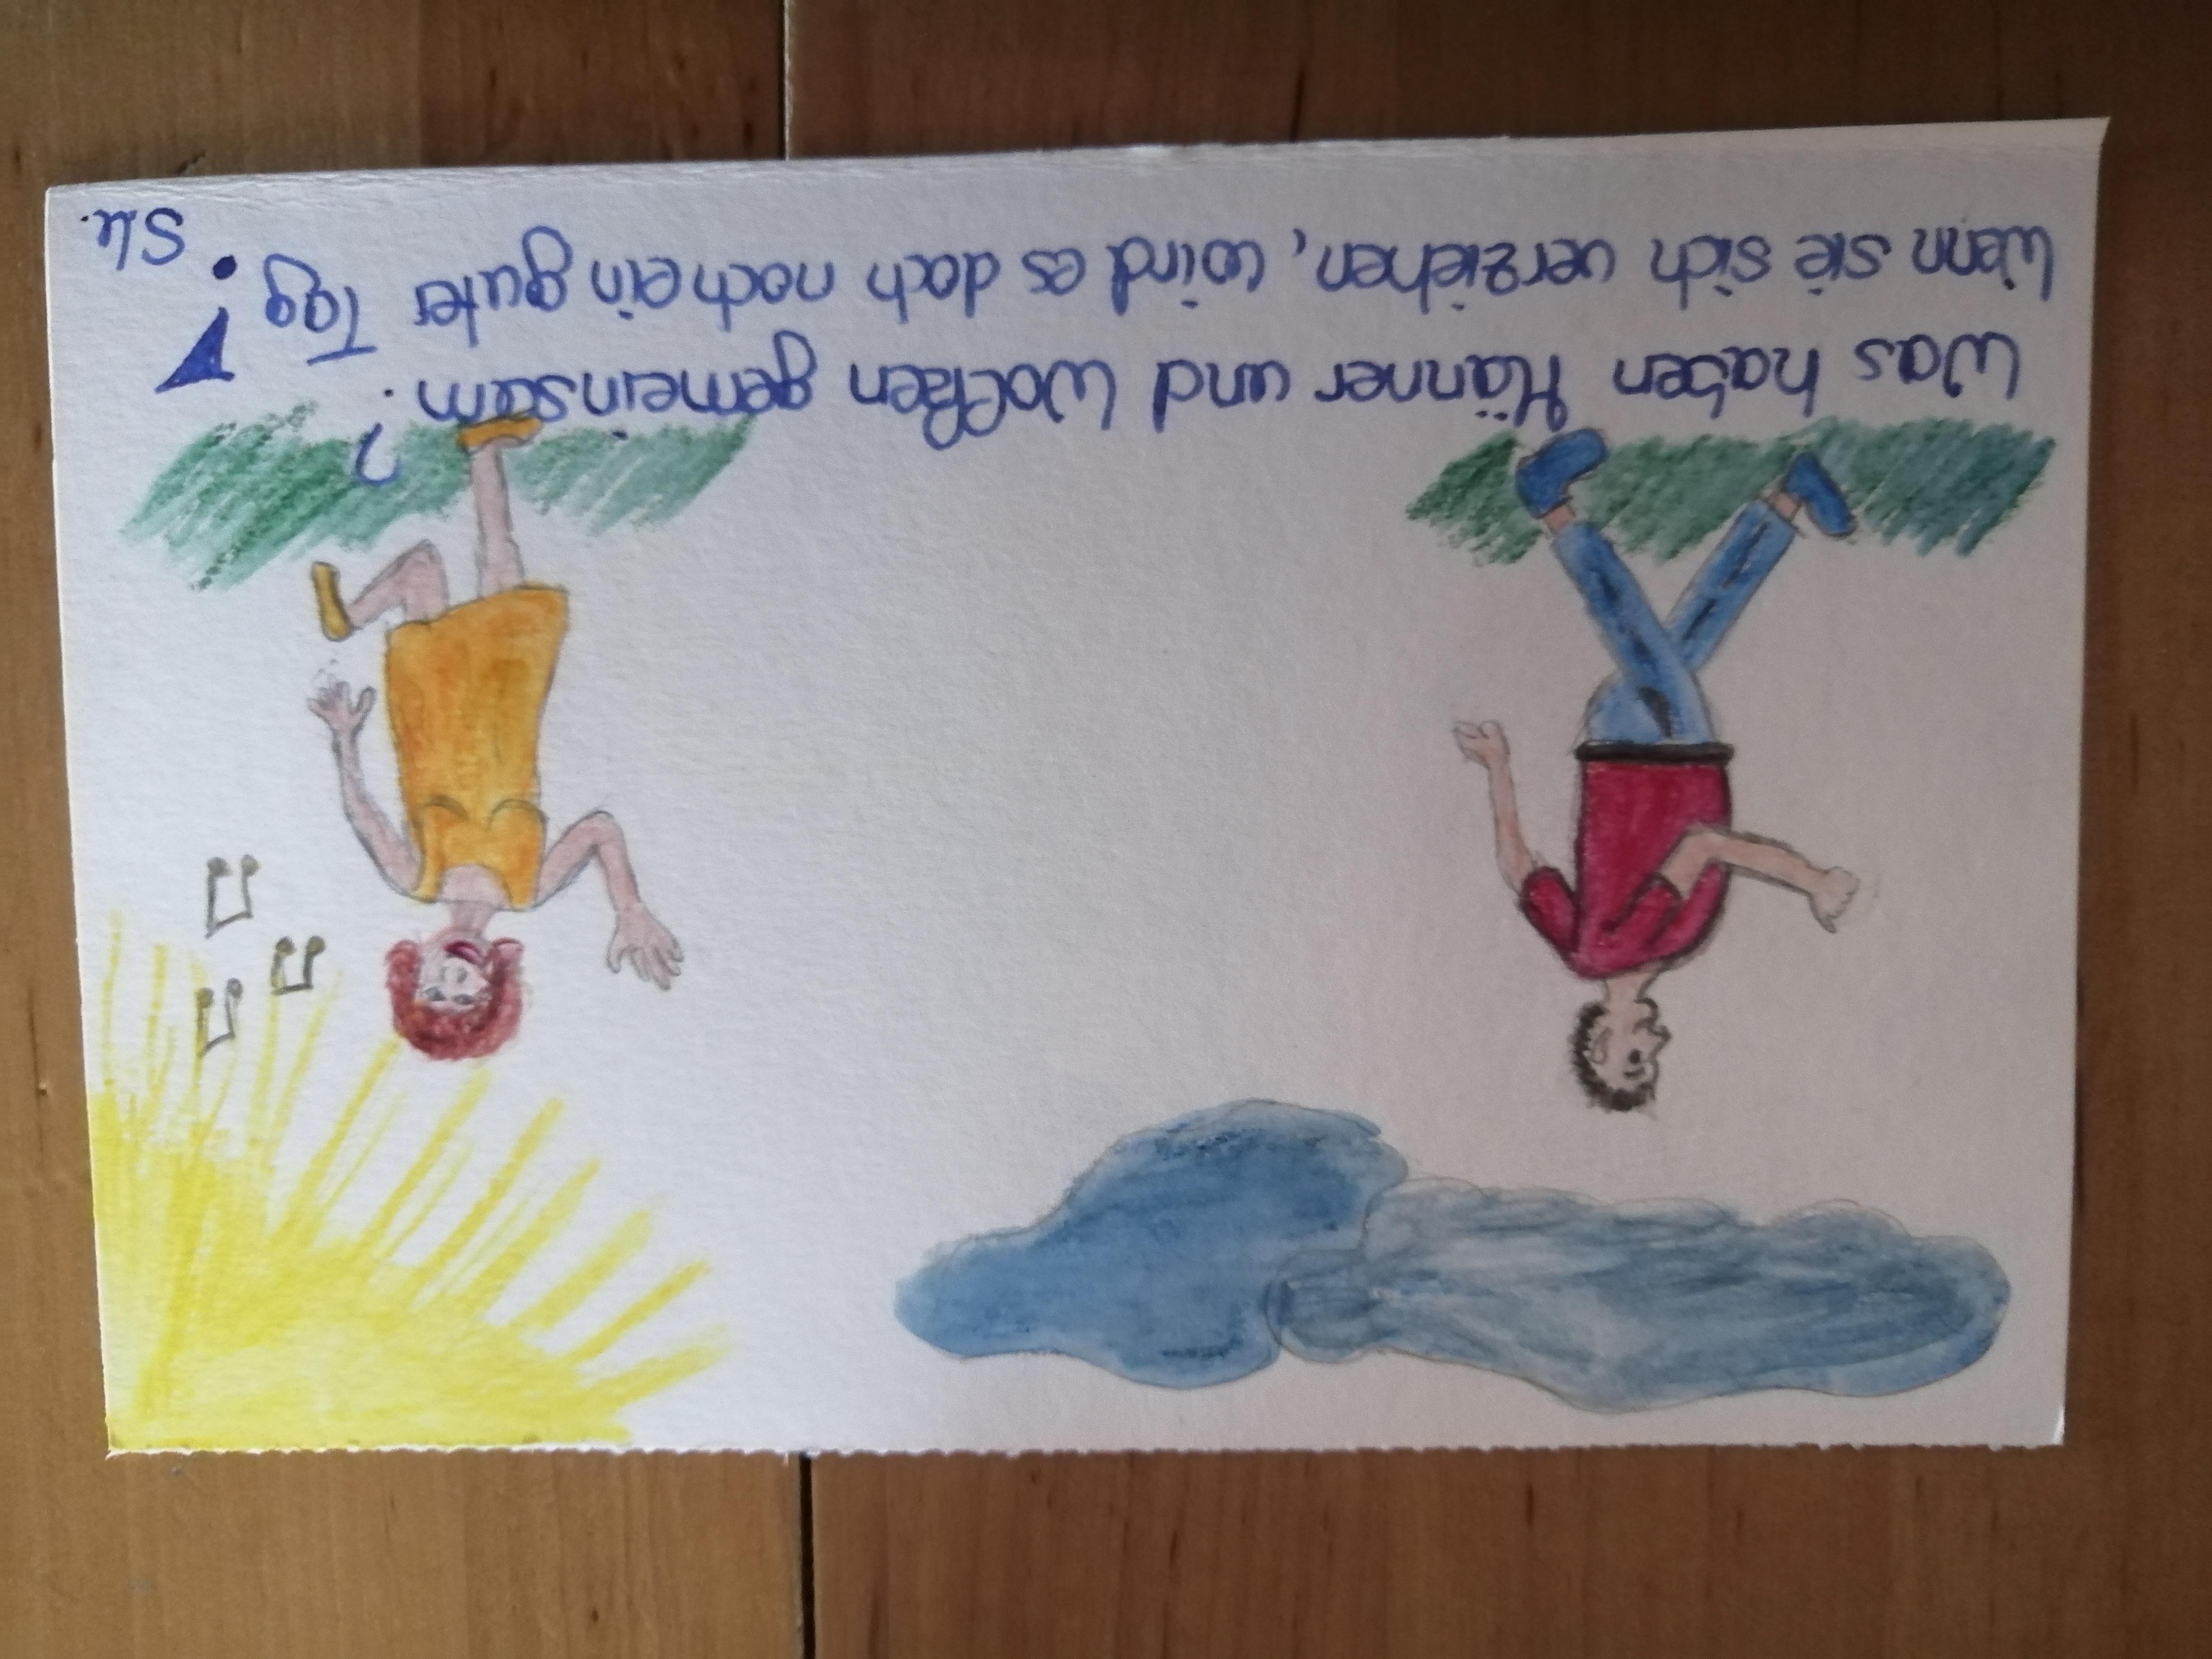 Was haben Männer und Wolken gemeinsam?
Wenn sie sich verziehen, wird es doch noch ein guter Tag!